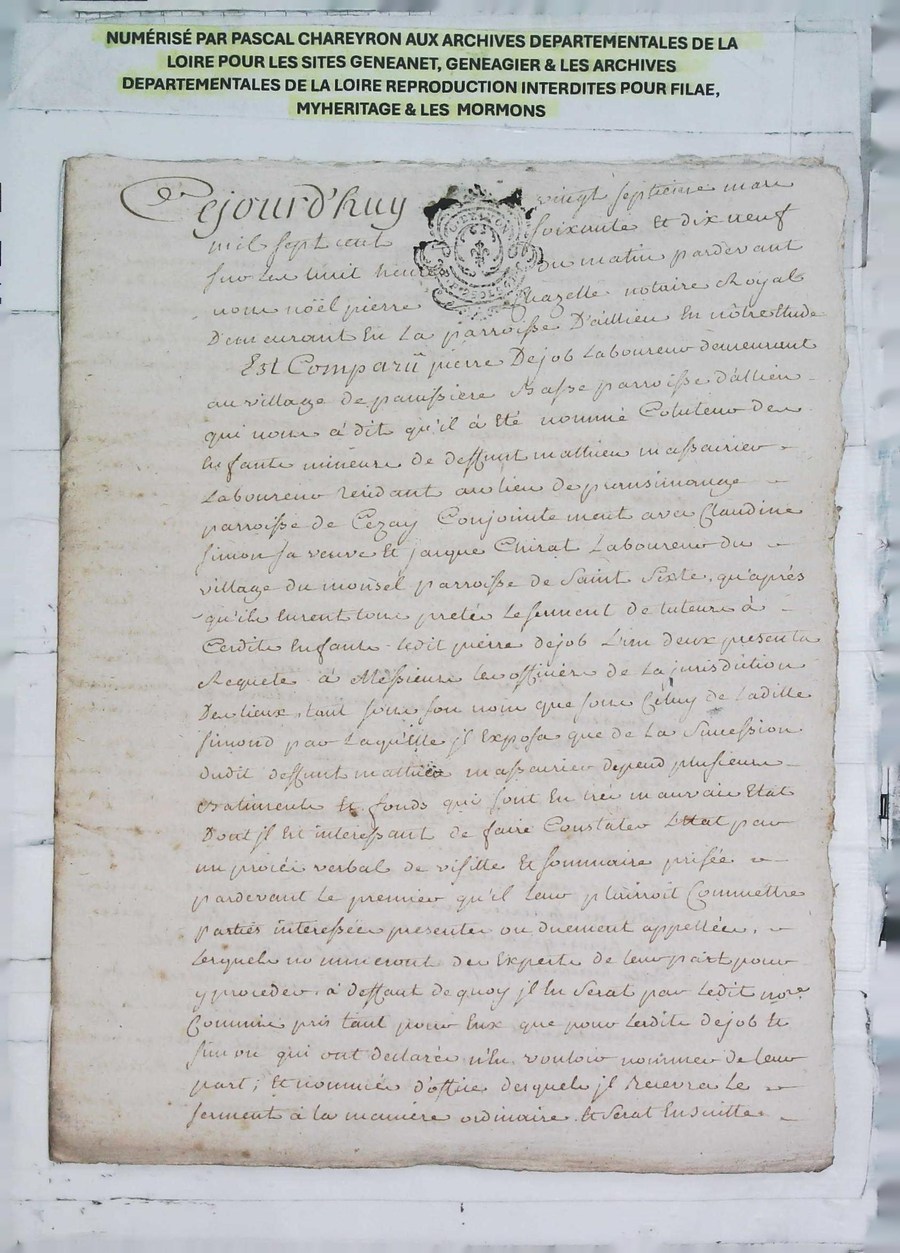 NUMÉRISÉ PAR PASCAL CHAREYRON AUX ARCHIVES DEPARTEMENTALES DE LA
LOIRE POUR LES SITES GENEANET, GENEAGIER & LES ARCHIVES
DEPARTEMENTALES DE LA LOIRE REPRODUCTION INTERDITES POUR FILAE,
MYHERITAGE & LES MORMONS
Cejourd'huy vingt septieme mars
mil sept cent soixante et dix neuf
sur les huit heures du matin pardevant
nous noël pierre notaire Royal
Demeurant En La parroisse D'aillieu En nôtre Etude
Est Comparü pierre Dejob Laboureur demeurant
au village de Basse parroisse d'allieu
qui nous à dit qu'il à Eté nommé des
Enfants mineurs de deffunt mathieu massacrier
Laboureur residant au lieu de
parroisse de Cezay Conjointement avec Claudine
simon sa veuve Et jacque Chirat Laboureur du
village du monsel parroisse de Saint Sixte, qu'après
qu'ils Eurent tous pretés Le serment de tuteurs à
Cesdits Enfants ledit pierre dejob L'un deux presenta
Requete à Messieurs les officiers de La jurisdiction
Des lieux, tant sous son nom que sous Celuy de Laditte
simond par Laquelle jl Exposa que de La Sucession
dudit deffunt mathieu massacrier depend plusieurs
Batiments Et fonds qui sont En tres mauvais Etat
Dont jl Est interessant de faire Constater L'Etat par
un procès verbal de visitte Et sommaire prisée
pardevant Le premier qu'il Leur plairroit Commettre
parties interessées presentes ou duement appellées,
Lesquels nommeront des Experts de leur part pour
y proceder, à deffaut de quoy jl En Serat par Ledit nore
Commis pris tant pour Eux que pour Lesdits dejob Et
simon qui ont declarés n'En vouloir nommer de leur
part; Et nommés d'office desquels jl Recevra Le
serment à la maniere ordinaire Et serat Ensuitte